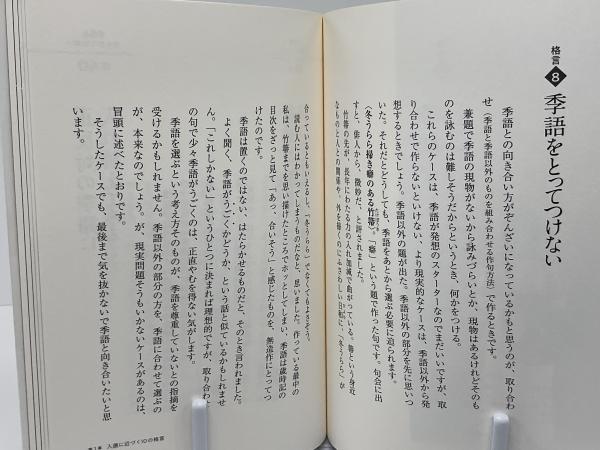 格言8 季語をとってつけない
季語との向き合い方がぞんざいになっているかもと思うのが、取り合わ
せ(季語と季語以外のものを組み合わせる作句方法)で作るときです。
兼題で季語の現物がないから詠みづらいとか、現物はあるけれどそのも
のを詠むのは難しそうだからというとき、何かをつける。
これらのケースは、季語が発想のスターターなのでまだいいですが、取
り合わせで作らないといけない、より現実的なケースは、季語以外から発
想するときでしょう。季語以外の題が出た。季語以外の部分を先に思いつ
いた。それだとどうしても、季語をあとから選ぶ必要に迫られます。
〈冬うらら掃き癖のある竹箒〉。「癖」という題で作った句です。句会に出
すと、俳人から、微妙だ、と評されました。
竹箒の先が、長年にわたる力の入れ加減で曲がっている。箒という身近
なものと人との関係や、外を掃くのにふさわしい日和に、「冬うらら」が
合っているともいえるし、「冬うらら」でなくてもよさそう。
読む人にはわかってしまうものだなと、思いました。作っている最中の
私は、竹箒までを思い描けたところでホッとしてしまい、季語は歳時記の
目次をざっと見て「あっ、合いそう」と感じたものを、無造作にとってつ
けたのです。
季語は置くのではない、はたらかせるものだと、そのとき言われました。
よく聞く、季語がうごくかどうか、という話と似ているかもしれませ
ん。「これしかない」というひとつに決まれば理想的ですが、取り合わせ
の句で少々季語がうごくのは、正直やむを得ない気がします。
季語を選ぶという考え方そのものが、季語を尊重していないとの指摘を
受けるかもしれません。季語以外の部分の方を、季語に合わせて選ぶの
が、本来なのでしょう。が、現実問題そうもいかないケースがあるのは、
冒頭に述べたとおりです。
そうしたケースでも、最後まで気を抜かないで季語と向き合いたいと思
います。
第1章 入選に近づく10の格言